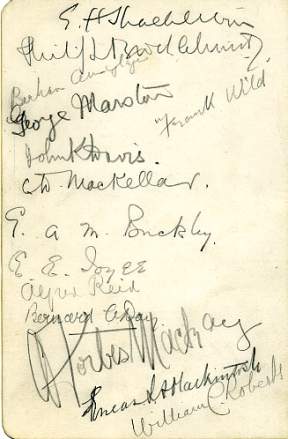 E. H Shackleton
Philip L Brocklehurst
Bertram Armytage
George Marston
"Frank Wild
John K Davis.
C. D. Mackellar.
G. a M. Buckley.
E E. Joyce
Alfred Reid
Bernard C Day
A Forbes Mackay
Æneas L A Mackintosh
William C Roberts